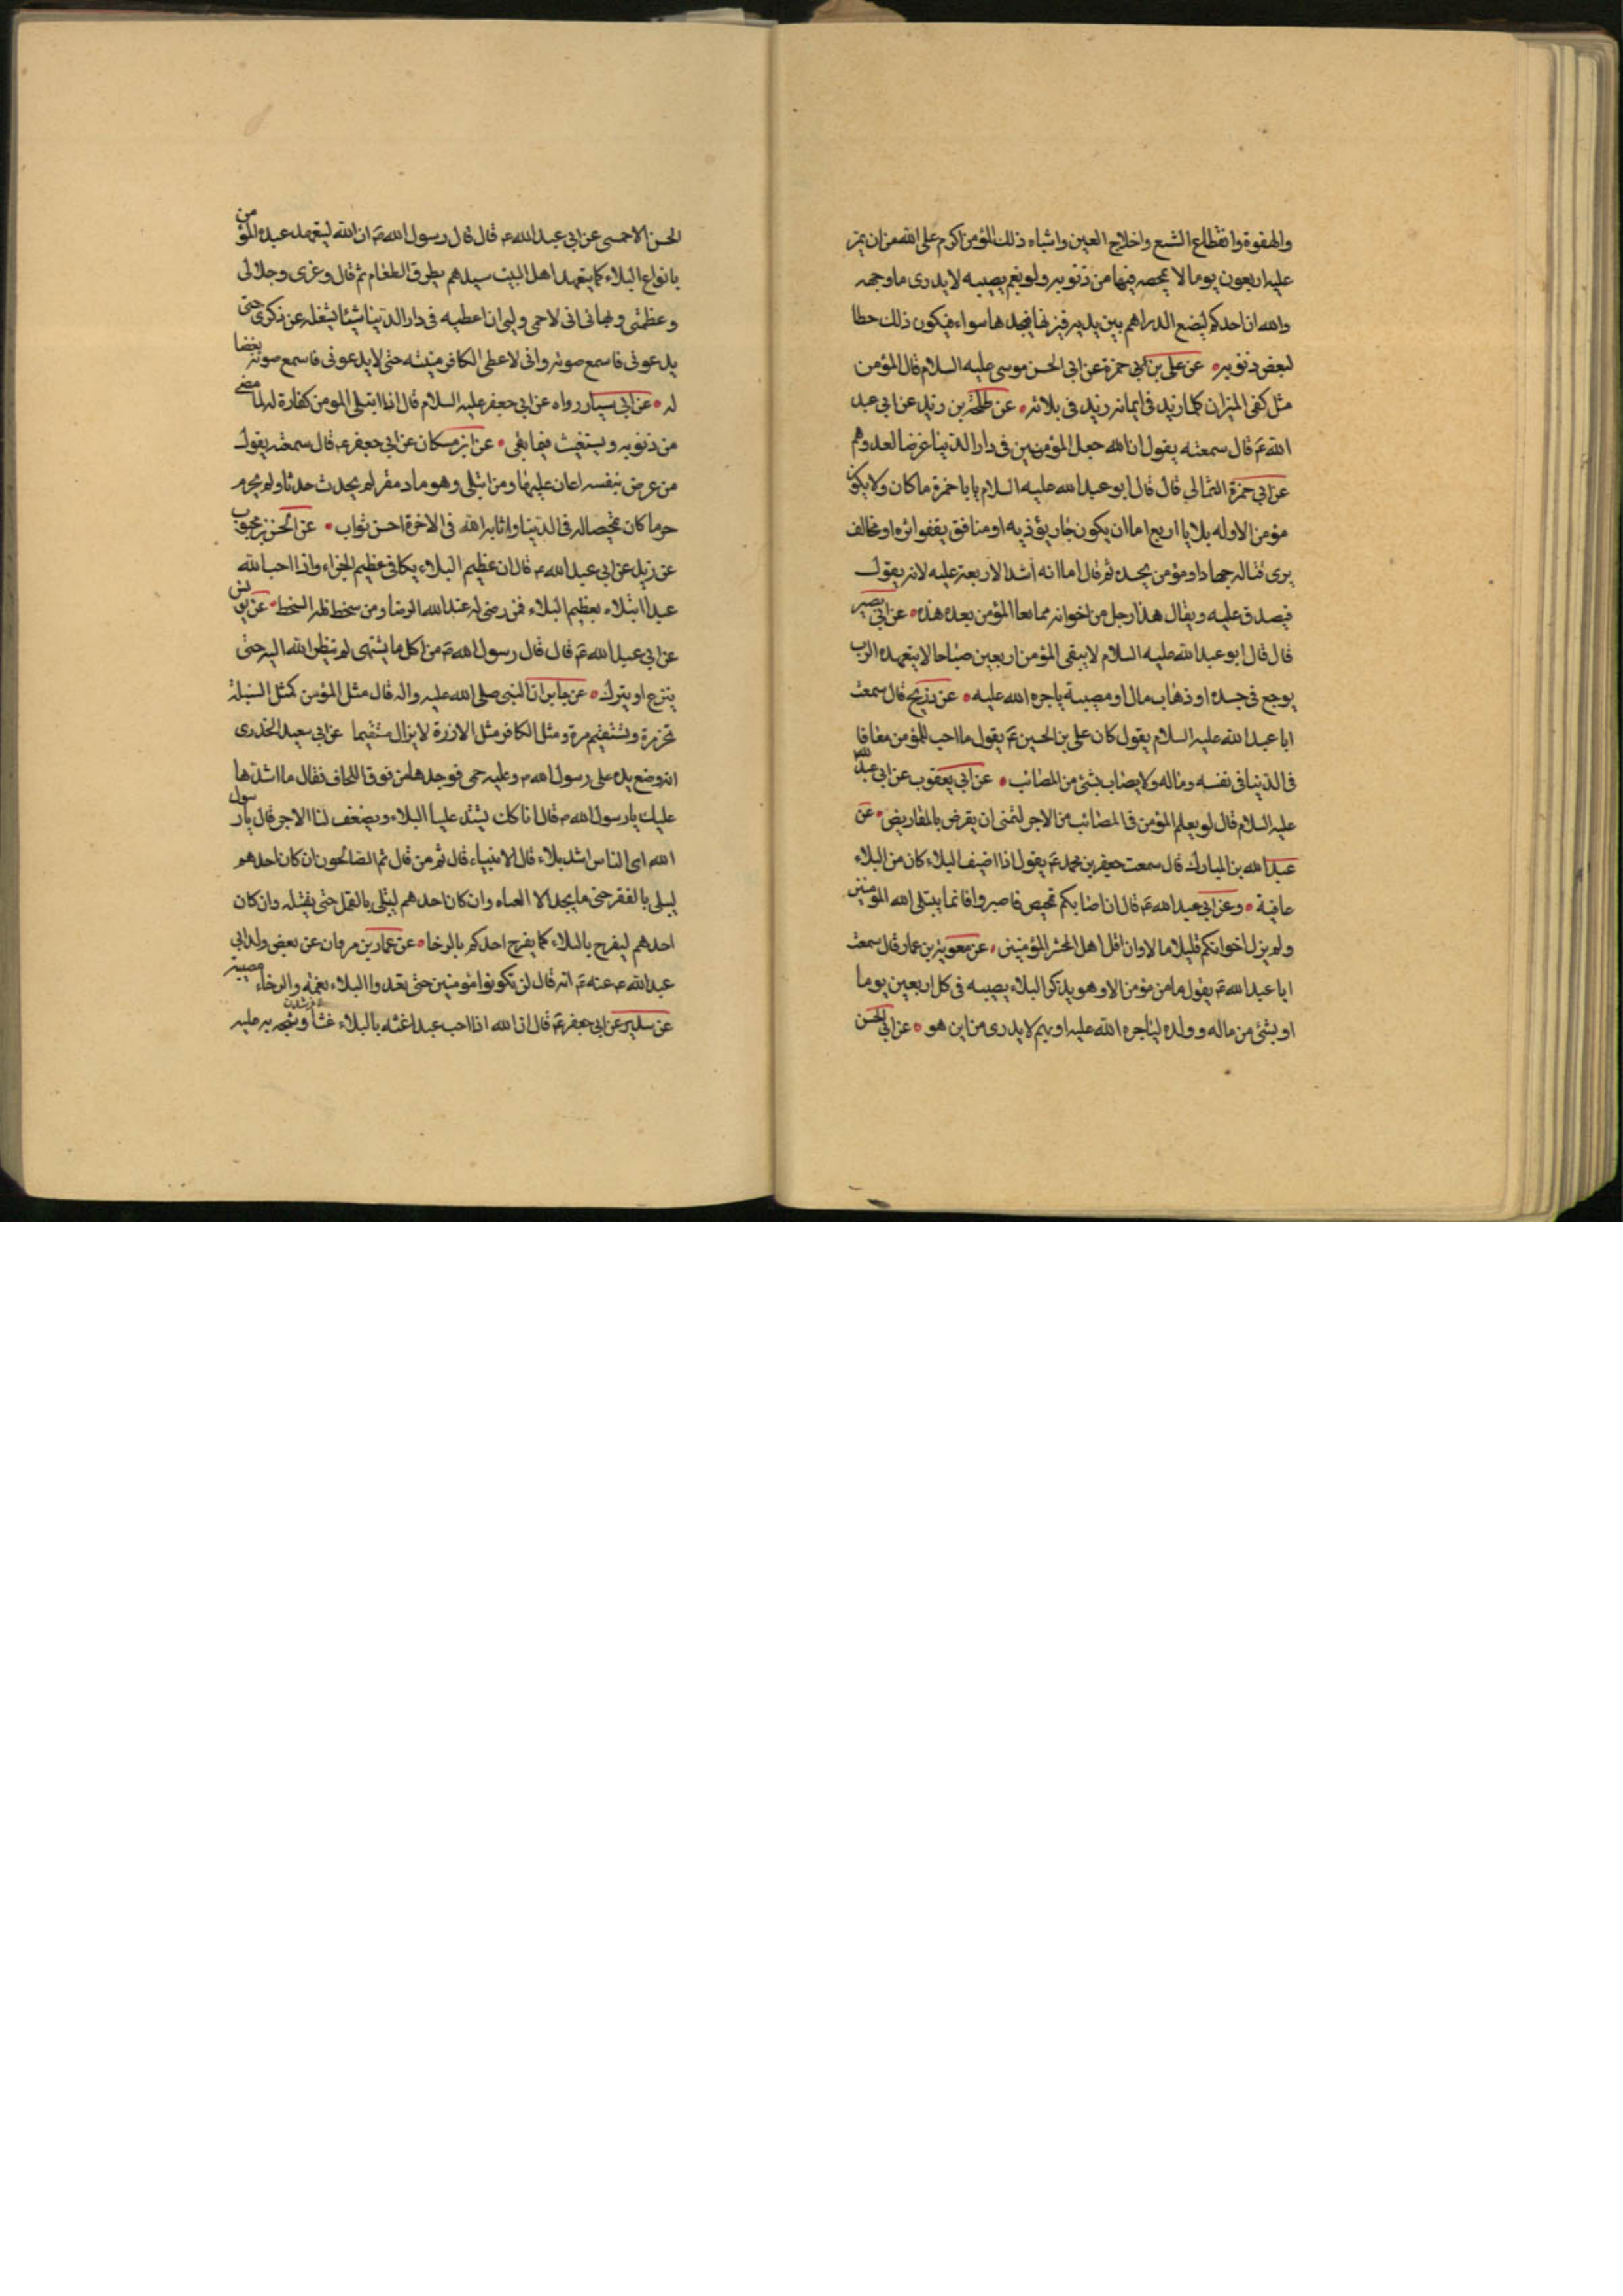 والهفوة وانقطاع الشسع واختلاج العين واشباه ذلك المؤمن اكرم على الله من ان يمر
عليه اربعون يوما لا يمحصه فيها من ذنوبه ولو بغم يصيبه لا يدرى ما وجهه
والله ان احدكم ليضع الدراهم بين يديه فيزنها فيجدها سواء فيكون ذلك حطا
لبعض ذنوبه عن على بن ابى حمزة عن ابى الحسن موسى عليه السلام قال المؤمن
مثل كفى الميزان كلما زيد فى ايمانه زيد فى بلائه عن طلحة بن زيد عن ابى عبد
الله ع قال سمعته يقول ان الله جعل المؤمنين فى دار الدنيا غرضا لعدوهم
عن ابى حمزة الثمالي قال قال ابو عبد الله عليه السلام يا با حمزة ما كان ولا يكون
مؤمن الا وله بلايا اربع اما ان يكون جار يؤذيه او منافق يقفوا اثره او مخالف
يرى قتاله جهادا او مؤمن يحسده ثم قال اما انه اشد الاربعة عليه لانه يقول
فيصدق عليه ويقال هذا رجل من اخوانه فما بعا المؤمن بعد هذه عن ابى بصير
قال قال ابو عبد الله عليه السلام لا يبقى المؤمن اربعين صباحا لا يتعهده الرب
بوجع فى جسده او ذهاب مال او مصيبة ياجره الله عليه عن ذريح قال سمعت
ابا عبد الله عليه السلام يقول كان على بن الحسين ع يقول ما احب للمؤمن معافا
فى الدنيا فى نفسه وماله ولا يصاب بشئ من المصائب عن ابى يعقوب عن ابى عبد الله
عليه السلام قال لو يعلم المؤمن فى المصائب من الاجر لتمنى ان يقرض بالمقاريض عن
عبد الله بن المبارك قال سمعت جعفر بن محمد ع يقول اذا اضيف البلاء كان من البلاء
عافية وعن ابى عبد الله ع قال ان اصابكم تمحيص فاصبروا فانما يبتلى الله المومنين
ولم يزل اخوانكم قليلا ما الا وان اقل اهل المحشر المؤمنين عن معوية بن عمار قال سمعت
ابا عبد الله ع يقول ما من مؤمن الا وهو يذكر البلاء يصيبه فى كل اربعين يوما
او بشئ من ماله وولده لياجره الله عليه او بهم لا يدرى من اين هو عن ابى الحسن
الحسن الاحمسى عن ابى عبد الله ع قال قال رسول الله ص ان الله ليتعهد عبده المؤمن
بانواع البلاء كما يتعهد اهل البيت سيدهم بطرق الطعام ثم قال وعزى وجلالى
وعظمتى وبهائى انى لاحمى وليى ان اعطيه فى دار الدنيا شيئا يشغله عن ذكرى حتى
يدعونى فاسمع صوته وانى لاعطى الكافر منيته حتى لا يدعونى فاسمع صوته بغضا
له عن ابى سيار رواه عن ابى جعفر عليه السلام قال اذا ابتلى المومن كفارة له لما مضى
من ذنوبه ويستغيث فيما بقى عن ابن مسكان عن ابى جعفر ع قال سمعته يقول
من عرض بنفسه اعان عليها ومن ابتلى وهو مادم مقر لم يحدث حدثا ولم يجرم
جرما كان تمحيصا له فى الدنيا واثابه الله فى الاخرة احسن ثواب عن الحسن بن محبوب
عن زيد عن ابى عبد الله ع قال ان عظيم البلاء يكافى عظيم الجزاء واذا احب الله
عبدا ابتلاه بعظيم البلاء فمن رضى له عند الله الرضا ومن سخط فله السخط عن يونس
عن ابى عبد الله ع قال قال رسول الله ص من اكل ما يشتهى لم ينظر الله اليه حتى
ينزع او يترك عن جابر ان النبى صلى الله عليه واله قال مثل المؤمن كمثل السنبلة
تخر مرة وتستقيم مرة ومثل الكافر مثل الارزة لا يزال مستقيما عن ابى سعيد الخدرى
انه وضع يده على رسول الله ص وعليه حمى فوجدها من فوق اللحاف فقال ما اشدها
عليك يا رسول الله ص قال انا كك يشتد علينا البلاء ويضعف لنا الاجر قال يا رسول
الله اى الناس اشد بلاء قال الانبياء قال ثم من قال ثم الصالحون ان كان احدهم
ليبلى بالفقر حتى ما يجد الا العباه وان كان احدهم ليبتلى بالقمل حتى يقتله وان كان
احدهم ليفرح بالبلاء كما يفرح احدكم بالرخا عن عمار بن مروان عن بعض ولد ابى
عبد الله ع عنه ع انه قال لن تكونوا مؤمنين حتى تعدوا البلاء نعمة والرخاء مصيبة
عن سدير عن ابى جعفر ع قال ان الله اذا احب عبدا غثه بالبلاء غثا وثجه به عليه